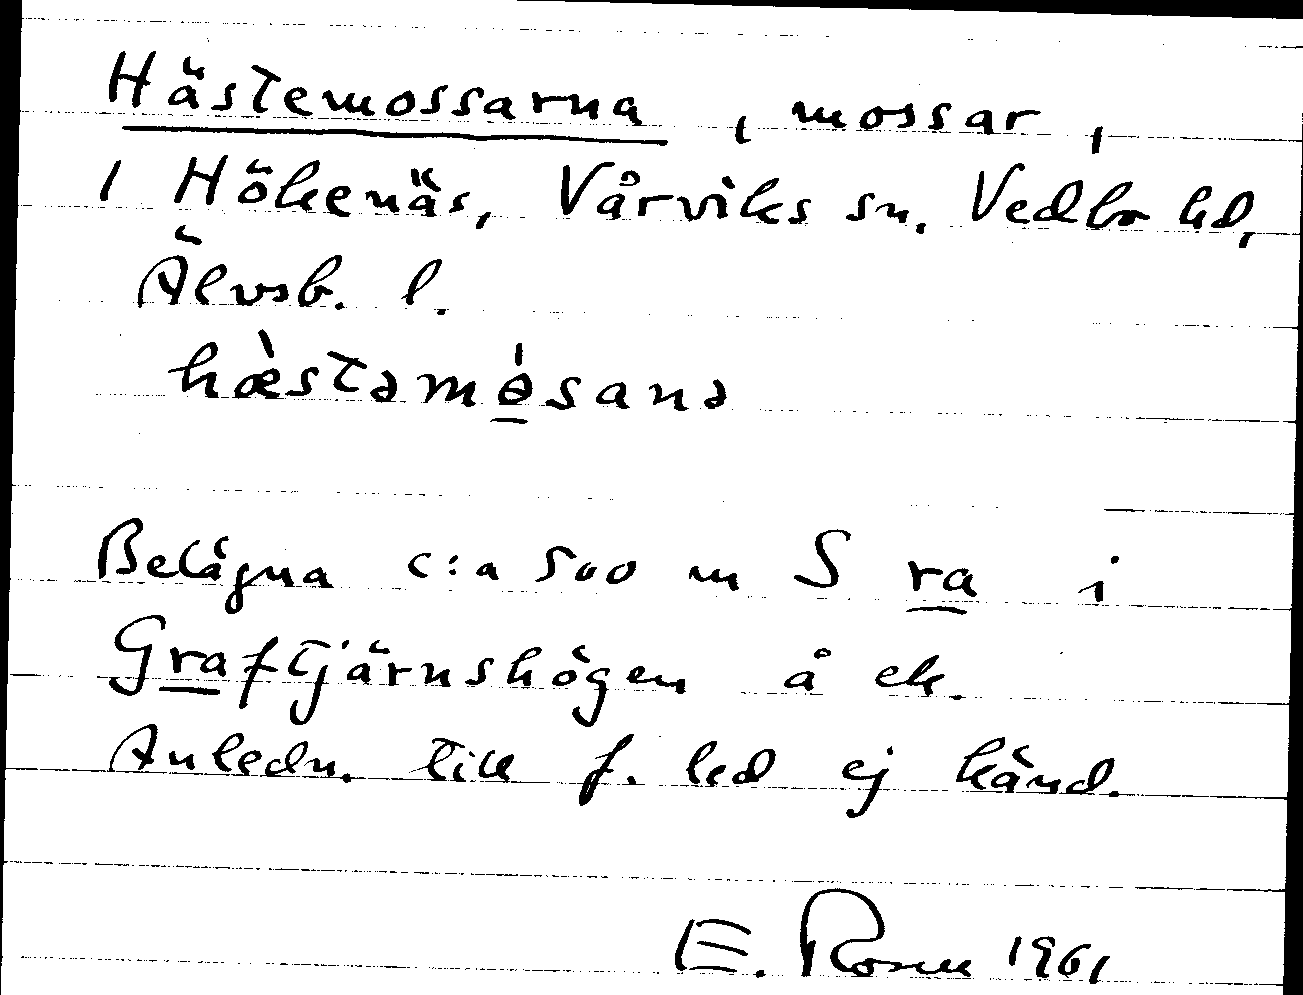 Hästemossarna, mossar,
1 Hökenäs, Vårviks sn. Vedbo hd,
Älvsb. l.
hæ̀stəmө́sanə
Belägna c:a 500 m S ra i
Graftjärnshögen å ek.
Anledn. till f. led ej känd.
E. Rosen 1961